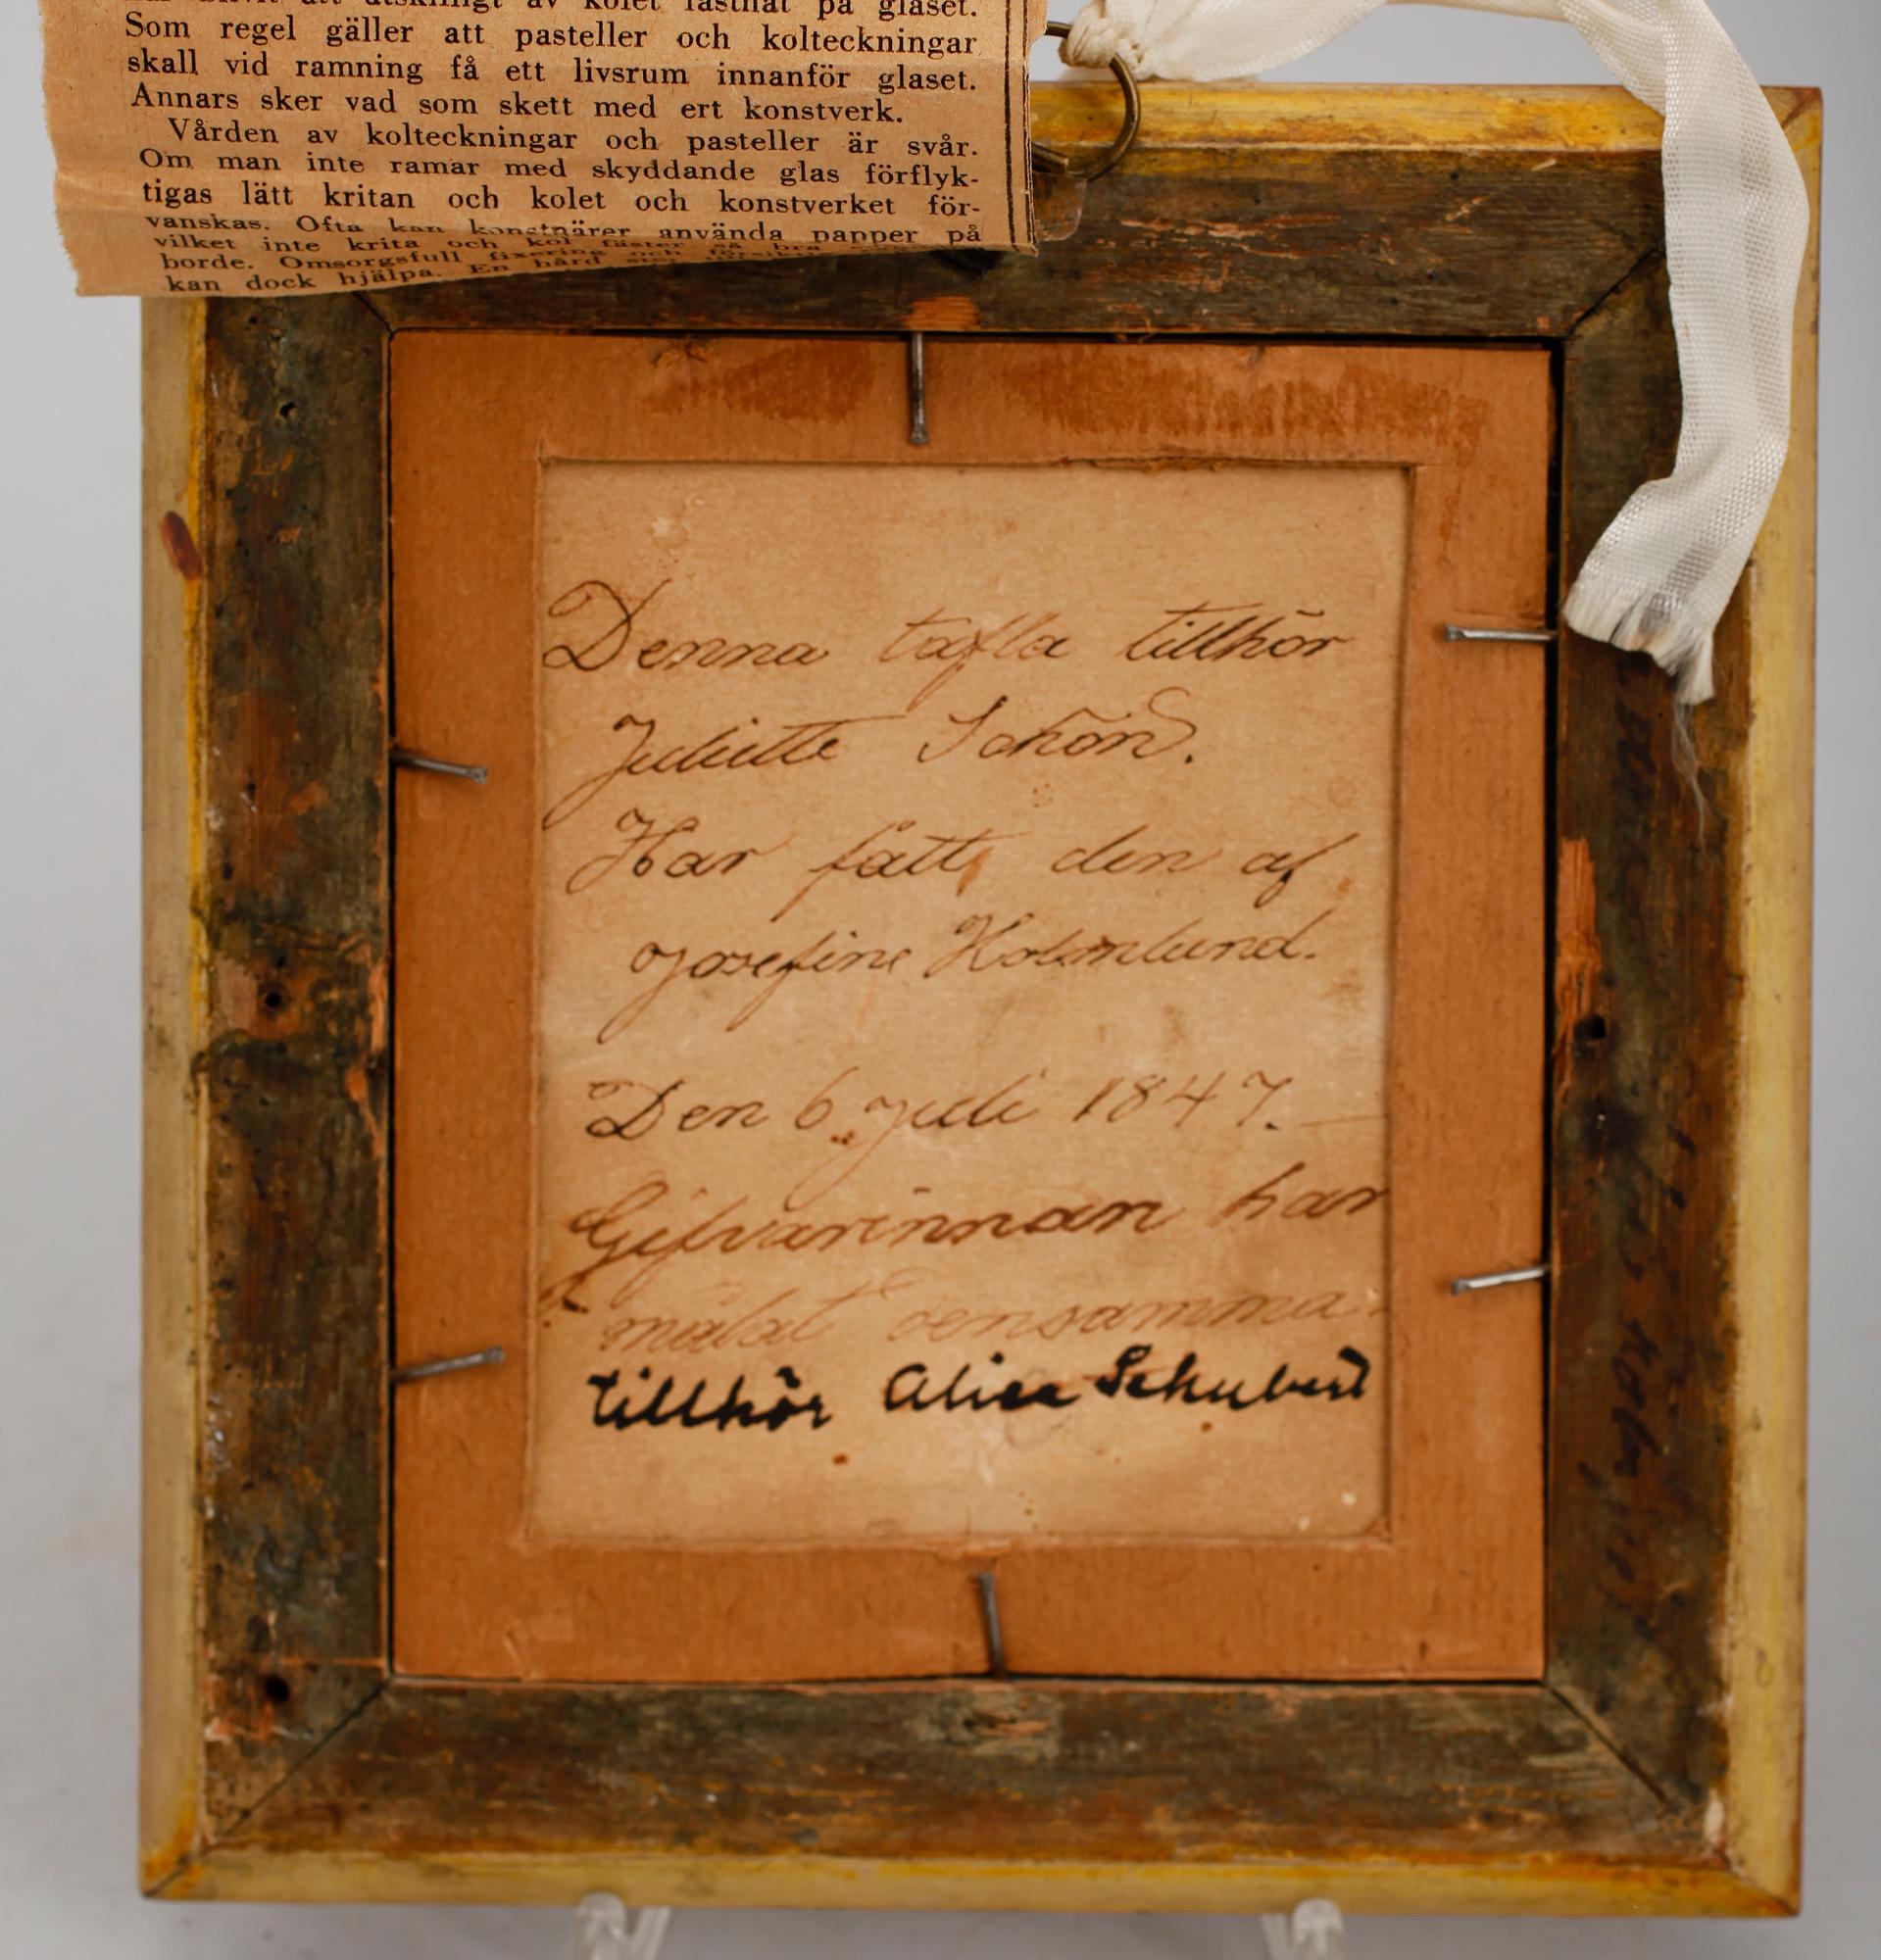 av kolet fastnat på glaset.
Som regel gäller att pasteller och kolteckningar
skall vid ramning få ett livsrum innanför glaset.
Annars sker vad som skett med ert konstverk.
Vården av kolteckningar och pasteller är svår.
Om man inte ramar med skyddande glas förflyk-
tigas lätt kritan och kolet och konstverket för-
vanskas. Ofta kan konstnärer använda papper på
vilket inte krita och kol fäster så bra
borde. Omsorgsfull fixering och
kan dock hjälpa. En hård
Denna tafla tillhör
Juliette Schön.
Har fått den af
Josefine Holmlund.
Den 6 Juli 1847.
Gifvarinnan har
målat densamma.
tillhör Alice Schubert